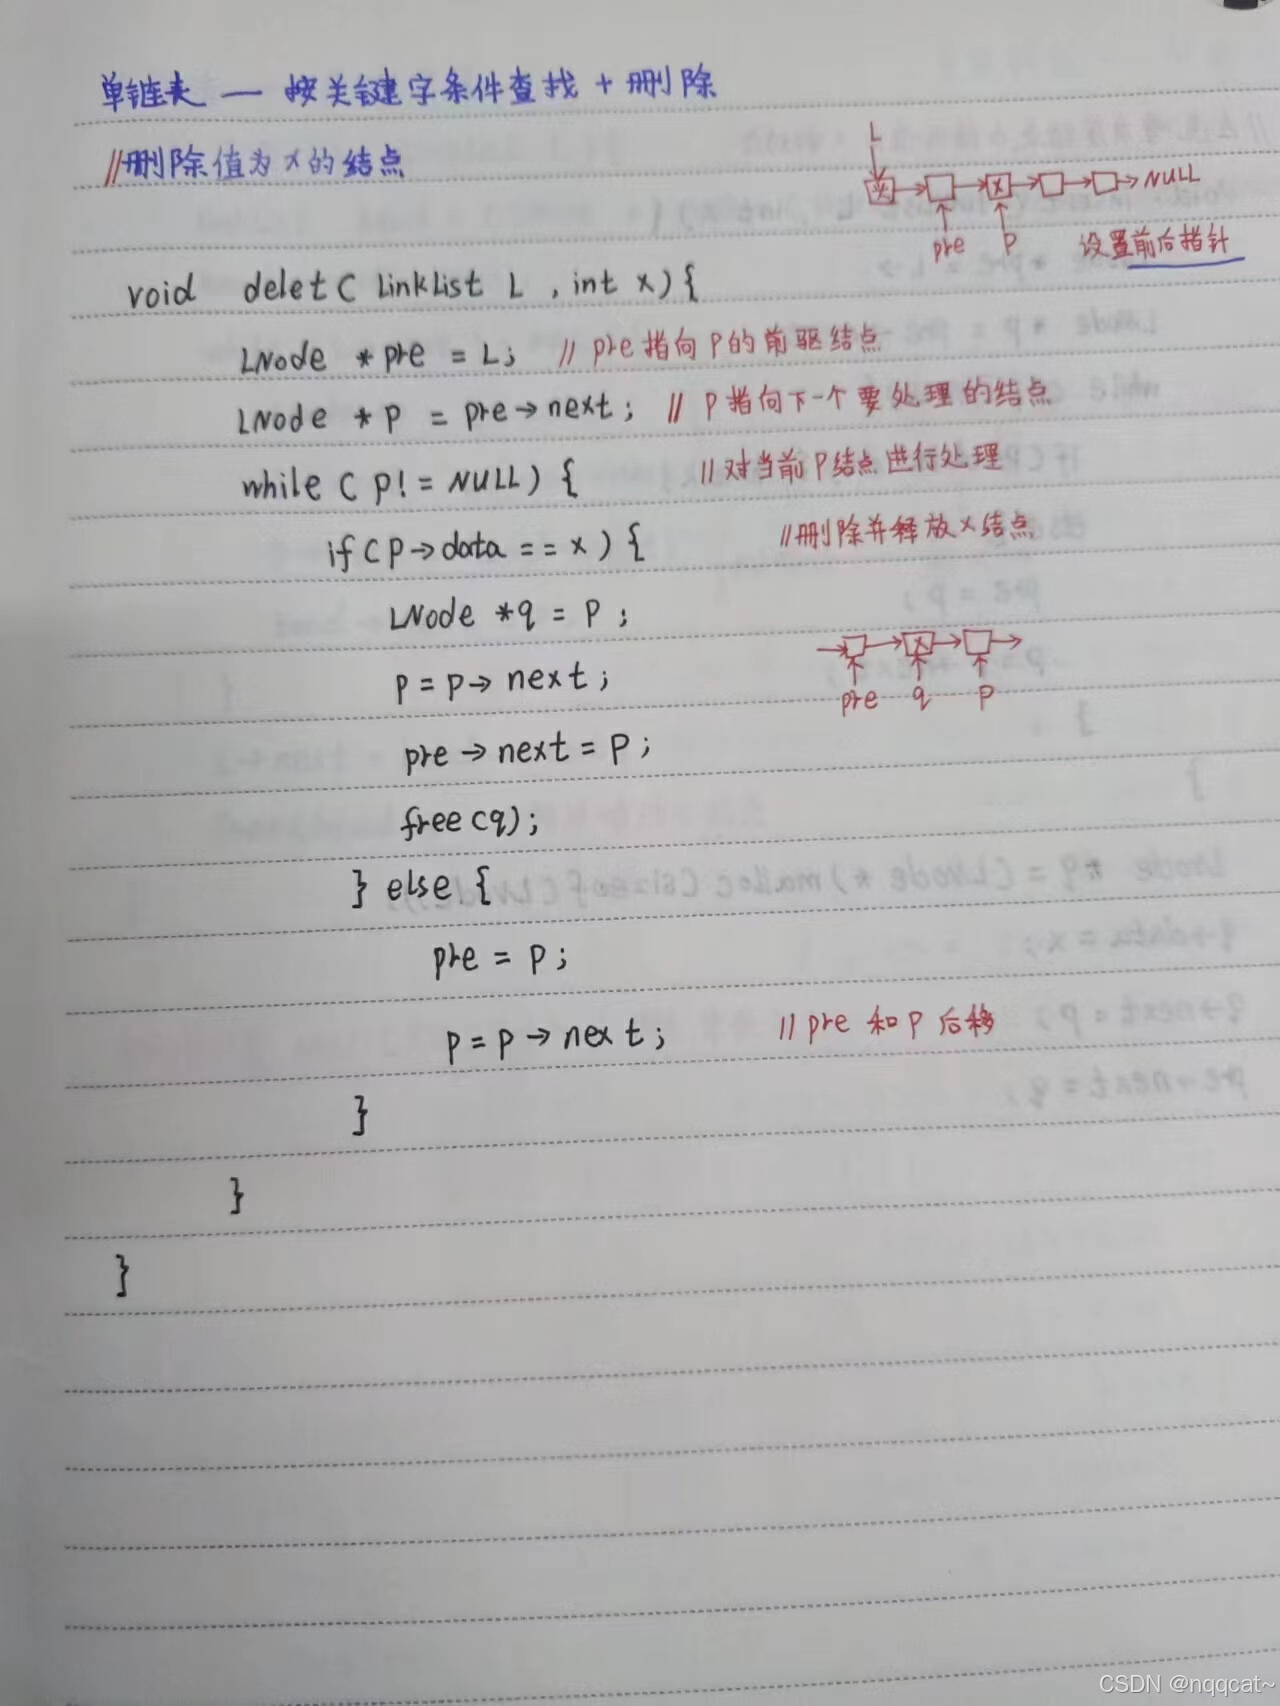 单链表 — 按关键字条件查找 + 删除
//删除值为x的结点
L
头 x NULL
pre p 设置前后指针
void delet( LinkList L , int x ) {
LNode * pre = L; // pre指向p的前驱结点
LNode * p = pre→next; // p指向下一个要处理的结点
while ( p! = NULL) { //对当前p结点进行处理
if (p→data == x ) { //删除并释放x结点
LNode *q = p ;
x
p = p→ next ; pre q p
pre → next = p ;
free (q);
} else {
pre = p ;
p = p → next ; // pre 和 p 后移
}
}
}
CSDN @nqqcat~